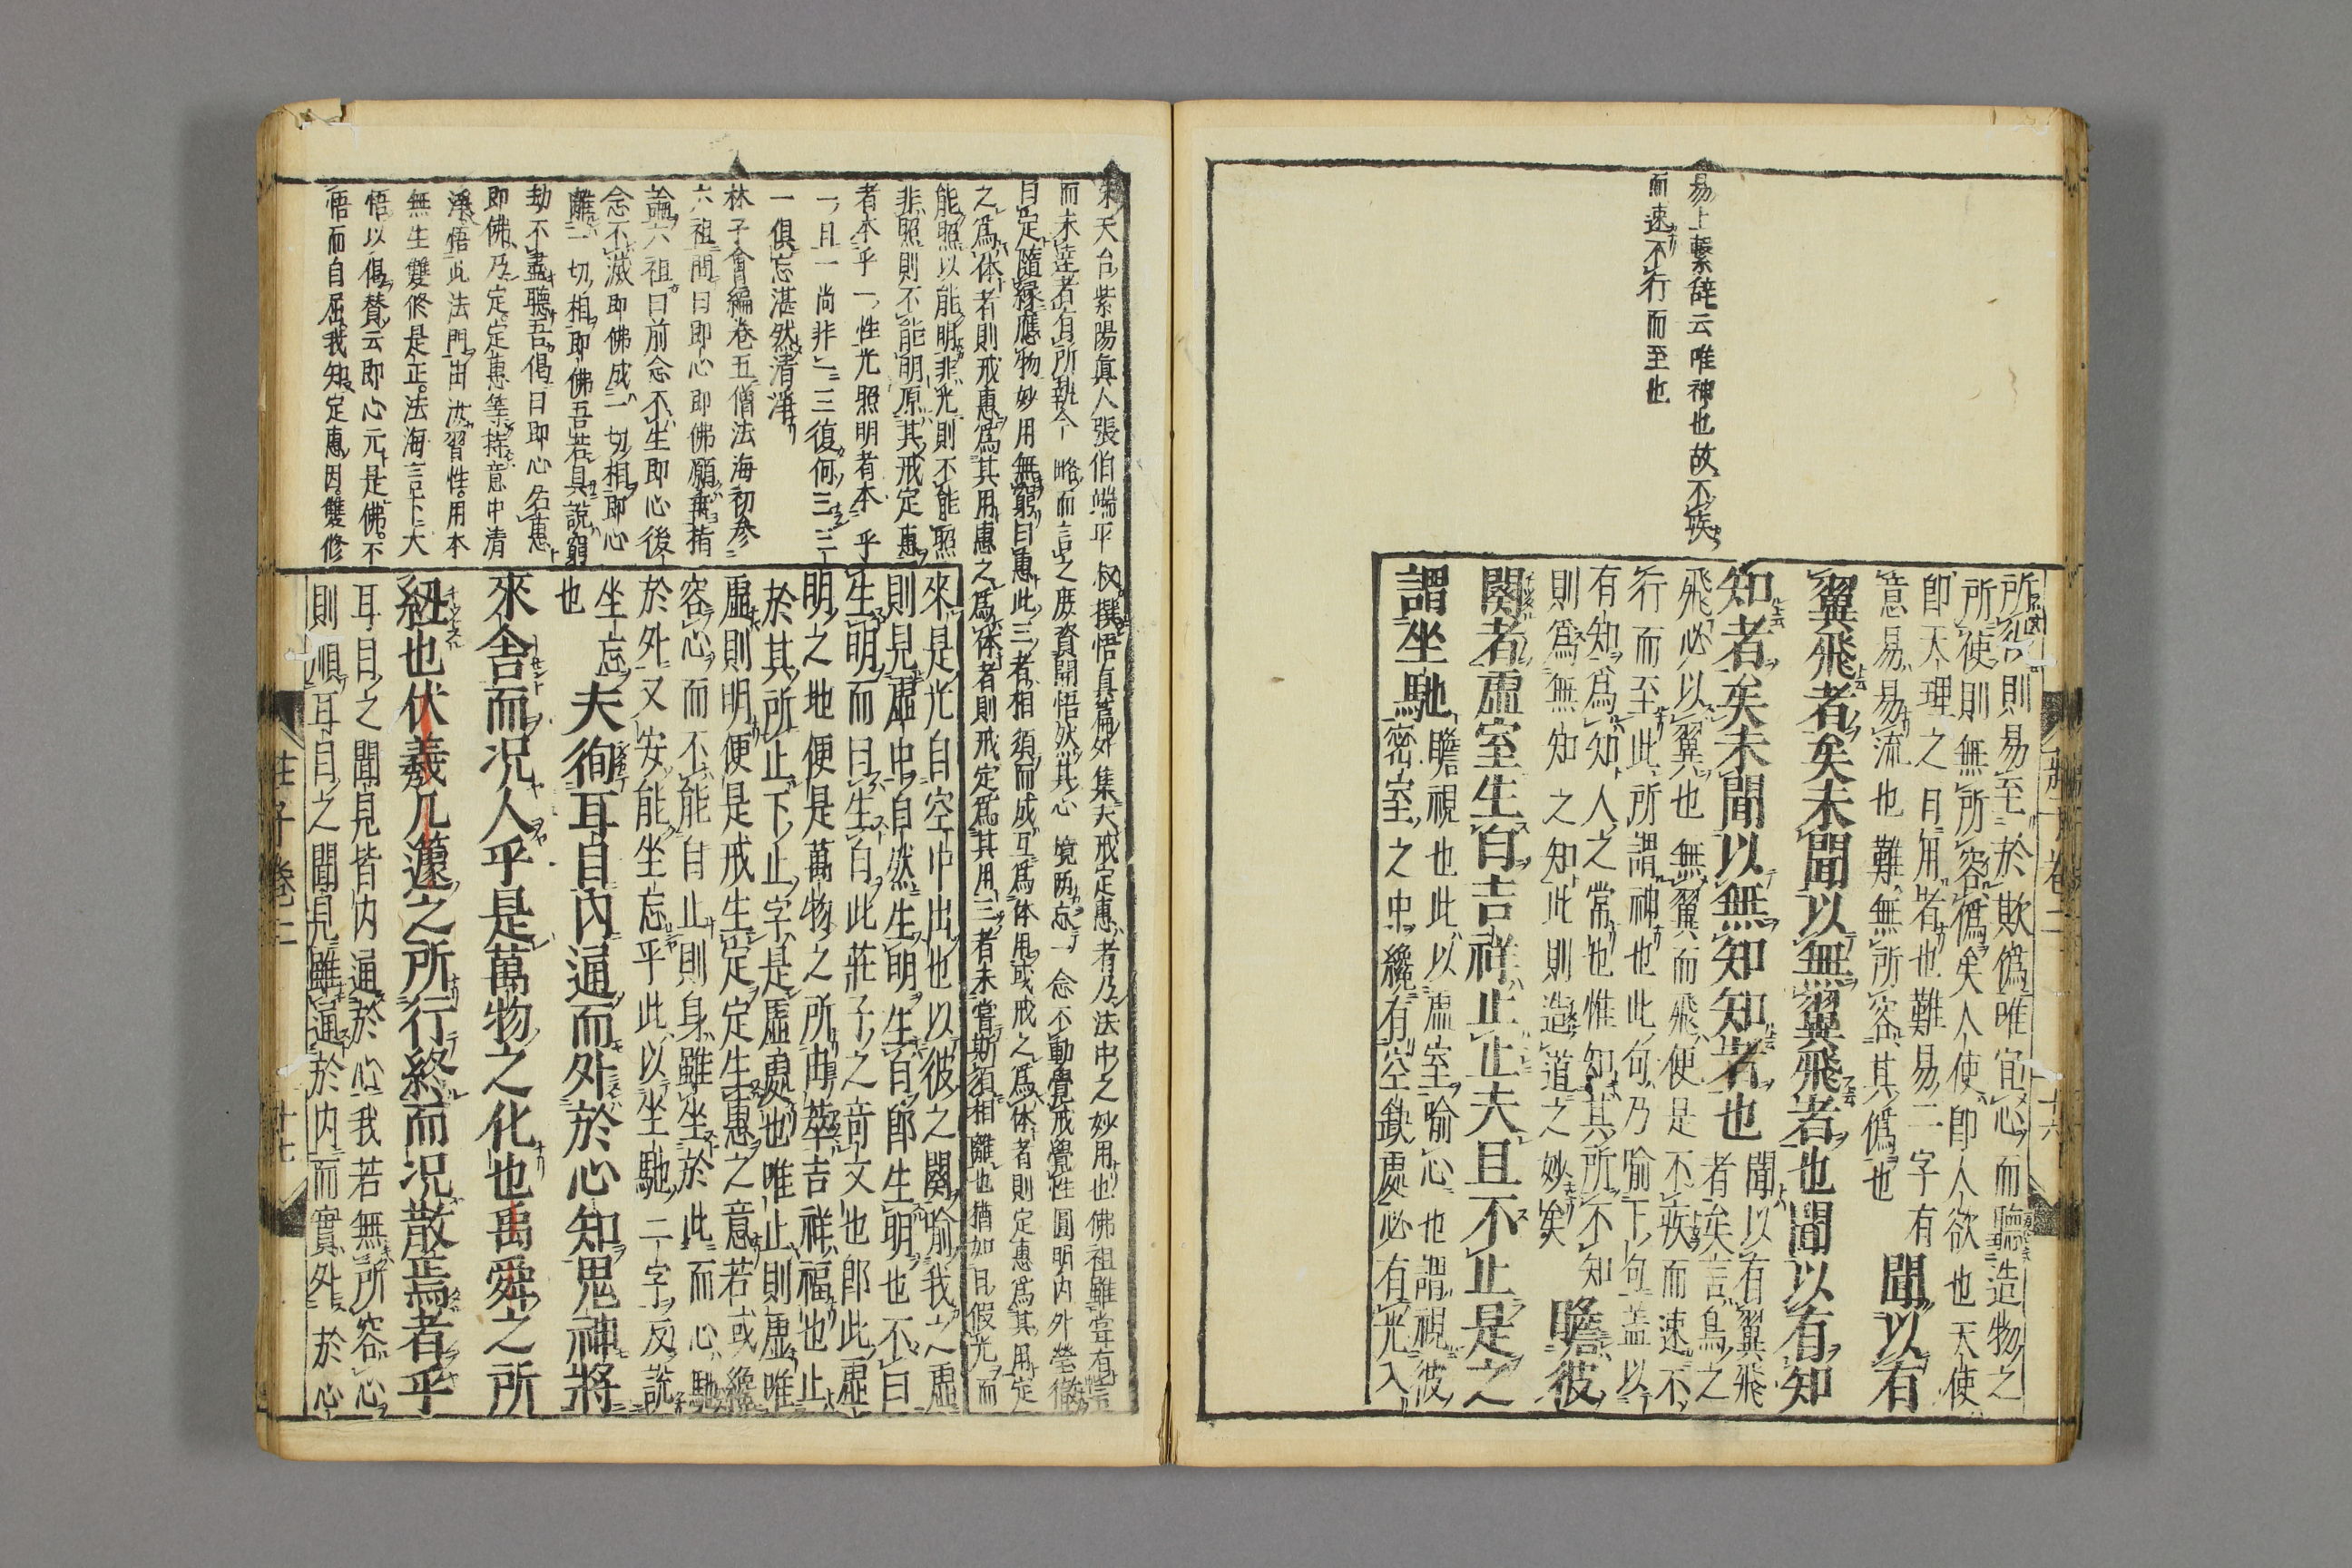 易上繫辞云唯神也故不疾
而速不行而至也
所役則易至於欺偽唯宜心而聽造物之
所使則無所容偽矣人使即人欲也天使
即天理之日用者也難易二字有
意易易流也難無所容其偽也
聞以有
翼飛者矣未聞以無翼飛者也聞以有知
知者矣未聞以無知知者也
聞以有翼飛
者矣言鳥之
飛必以翼也無翼而飛便是不疾而速不
行而至此所謂神也此何乃喻下句蓋以
有知爲知人之常也惟知其所不知
則爲無知之知此則造道之妙矣
瞻彼
闋者虛室生白吉祥止止夫且不止是之
謂坐馳
瞻視也此以虛室喻心也謂視彼
密室之中纔有空鈌處必有光入
莊子卷二
十六
宋天台紫陽眞人張伯端平叔撰悟真篇外集夫戒定惠者乃法中之妙用也佛祖雖甞有言
而未達者有所執今略而言之庶資開悟然其心境兩忘一念不動覺戒覺性圓明内外瑩徹
曰定隨緣應物妙用無窮曰惠此三者相須而成互爲体用或戒之爲体者則定惠爲其用定
之爲体者則戒惠爲其用惠之爲体者則戒定爲其用三者未甞斯須相離也猶如日假光而
能照以能明非光則不能照
非照則不能明原其戒定惠
者本乎一性光照明者本乎
一日一尚非一三復何三三
一俱忘湛然清淨
林子會編卷五僧法海初參
六祖問曰即心即佛願垂指
諭六祖曰前念不生即心後
念不滅即佛成一切相即心
離一切相即佛吾若具說窮
劫不盡聽吾偈曰即心名惠
即佛乃定定惠等持意中清
淨悟此法門由汝習性用本
無生雙修是正法海言下大
悟以偈賛云即心元是佛不
悟而自屈我知定惠因雙修
來是光自空中出也以彼之闋喻我之虛
則見虛中自然生明生白即生明也不曰
生明而曰生白此莊子之竒文也即此虛
明之地便是萬物之所由萃吉祥福也止
於其所止下止字是虛處也唯止則虛唯
虛則明便是戒生定定生惠之意若或纔
容心而不能自止則身雖坐於此而心馳
於外又安能坐忘乎此以坐馳二字反說
坐忘
也
夫徇耳目内通而外於心知鬼神將
來舎而况人乎是萬物之化也禹舜之所
紐也伏羲几蘧之所行終而况散焉者乎
耳目之聞見皆内通於心我若無所容心
則順耳目之聞見雖通於内而實外於心
莊子卷二
十七